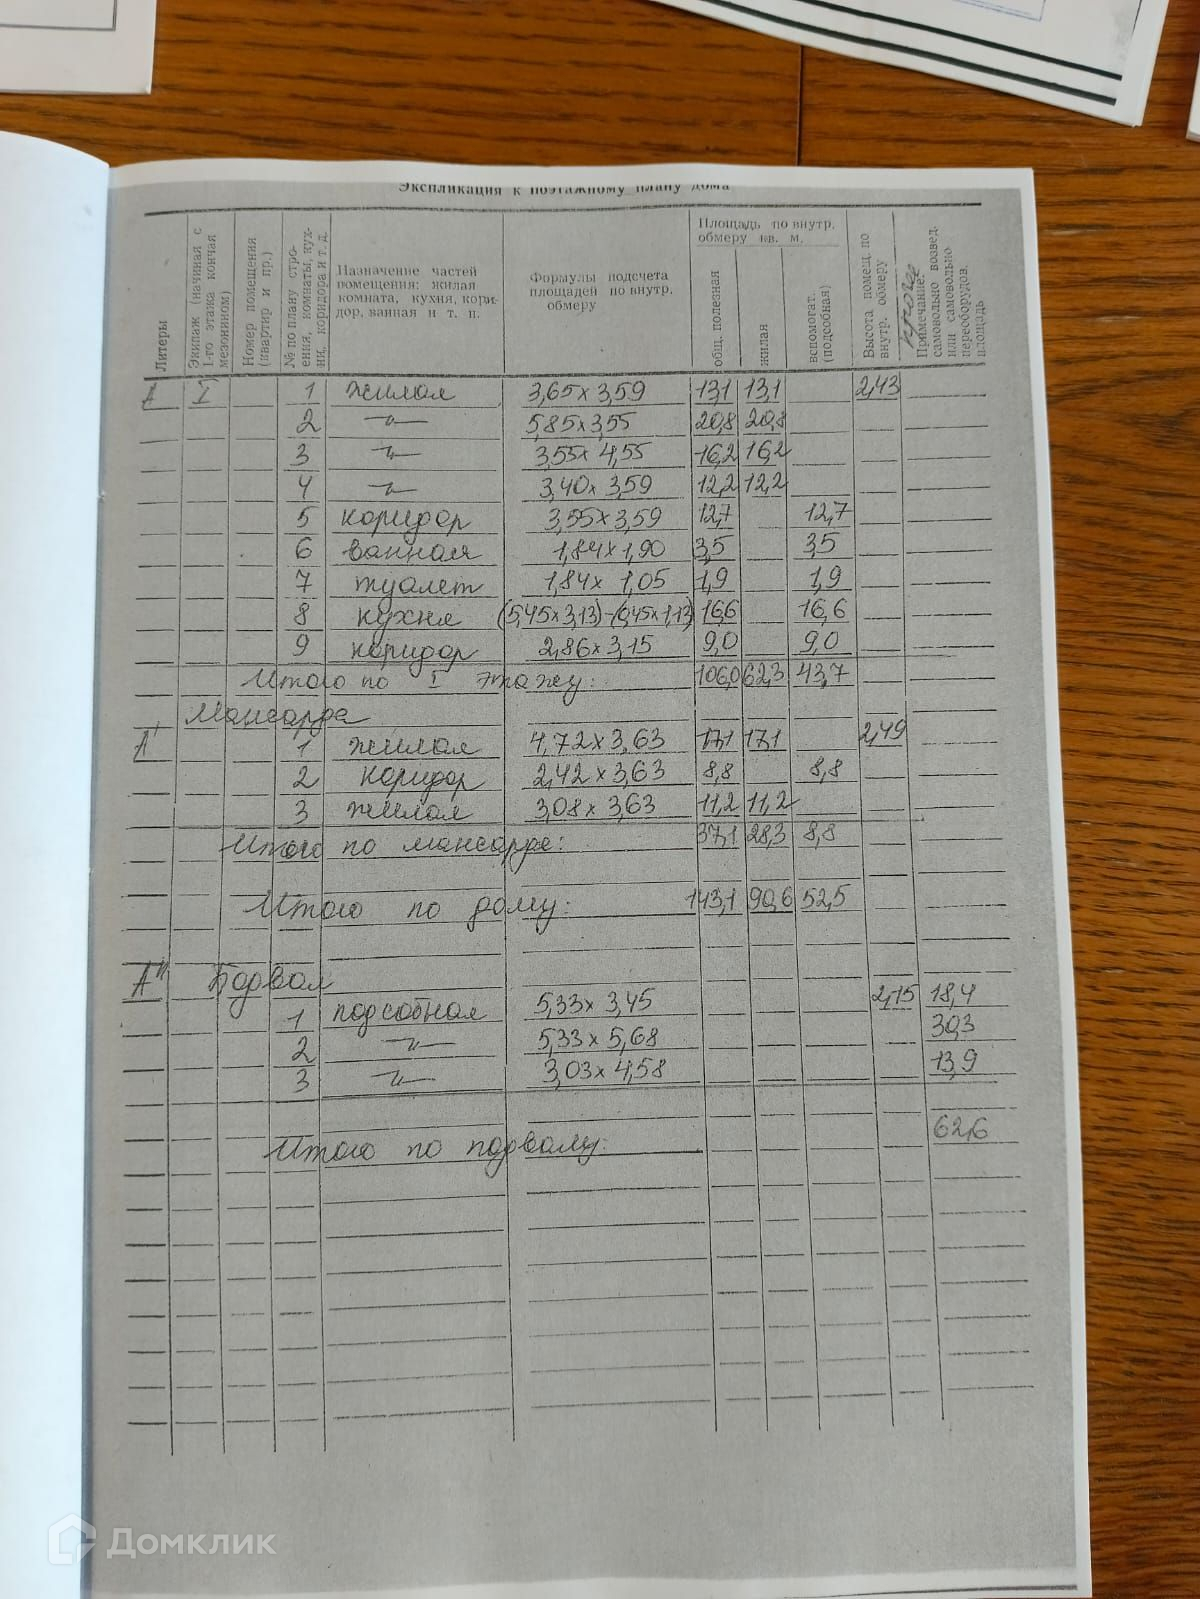 Экспликация к поэтажному плану дома
Литеры
Экипаж (начиная с 1-го этажа кончая мезонином)
Номер помещения (квартир и пр.)
№ по плану строения, комнаты, кухни, коридора и т. д.
Назначение частей помещения: жилая комната, кухня, коридор, ванная и т. п.
Формулы подсчета площадей по внутр. обмеру
Площадь по внутр. обмеру кв. м.
общ. полезная
жилая
вспомогат. (подсобная)
Высота помещ. по внутр. обмеру
прочее
Примечание: самовольно возвед. или самовольно переоборудов. площадь
А I 1 жилая 3,65 x 3,59 13,1 13,1 2,43
2 —"— 5,85 x 3,55 20,8 20,8
3 —"— 3,55 x 4,55 16,2 16,2
4 —"— 3,40 x 3,59 12,2 12,2
5 коридор 3,55 x 3,59 12,7 12,7
6 ванная 1,84 x 1,90 3,5 3,5
7 туалет 1,84 x 1,05 1,9 1,9
8 кухня (5,45 x 3,13)-(0,45 x 1,13) 16,6 16,6
9 коридор 2,86 x 3,15 9,0 9,0
Итого по I этажу: 106,0 62,3 43,7
Мансарда
А' 1 жилая 4,72 x 3,63 17,1 17,1 2,49
2 коридор 2,42 x 3,63 8,8 8,8
3 жилая 3,08 x 3,63 11,2 11,2
Итого по мансарде: 37,1 28,3 8,8
Итого по дому: 143,1 90,6 52,5
А" Подвал
1 подсобная 5,33 x 3,45 2,15 18,4
2 —"— 5,33 x 5,68 30,3
3 —"— 3,03 x 4,58 13,9
Итого по подвалу: 62,6
Домклик